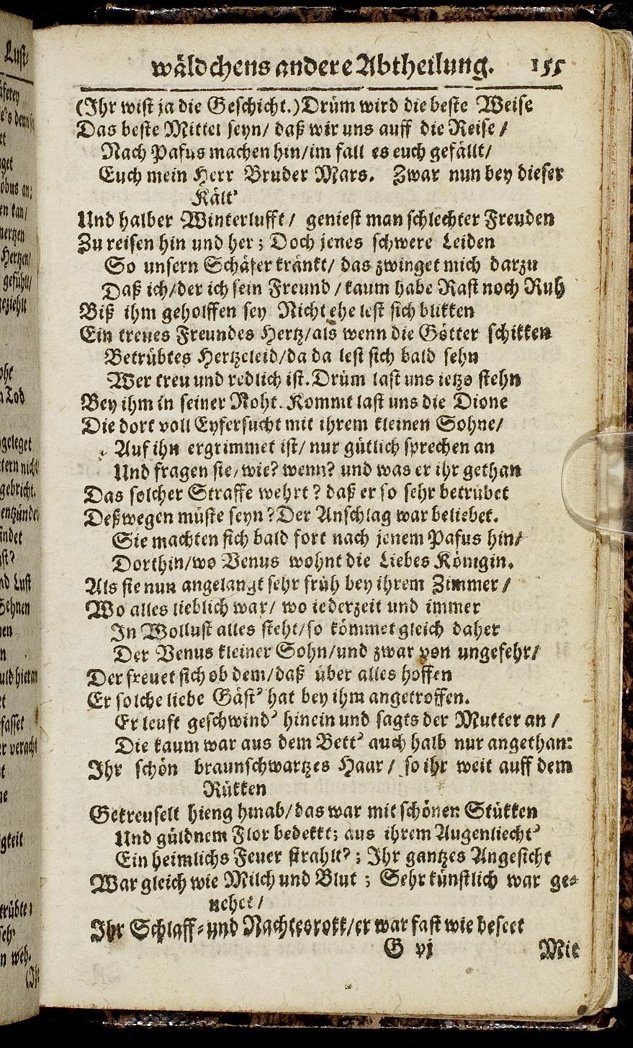 wäldchens andere Abtheilung. 155
(Ihr wist ja die Geschicht.) Drüm wird die beste Weise
Das beste Mittel seyn / daß wir uns auff die Reise /
Nach Pafus machen hin / im fall es euch gefällt /
Euch mein Herr Bruder Mars. Zwar nun bey dieser
Kält'
Und halber Winterlufft / geniest man schlechter Freuden
Zu reisen hin und her ; Doch jenes schwere Leiden
So unsern Schäfer kränkt / das zwinget mich darzu
Daß ich / der ich sein Freund / kaum habe Rast noch Ruh
Biß ihm geholffen sey Nicht ehe lest sich blikken
Ein treues Freundes Hertz / als wenn die Götter schikken
Betrübtes Hertzeleid / da da lest sich bald sehn
Wer treu und redlich ist. Drüm last uns ietzo stehn
Bey ihm in seiner Noht. Kommt last uns die Dione
Die dort voll Eyfersucht mit ihrem kleinen Sohne /
Auf ihn ergrimmet ist / nur gütlich sprechen an
Und fragen sie / wie? wenn? und was er ihr gethan
Das solcher Straffe wehrt ? daß er so sehr betrübet
Deßwegen müste seyn ? Der Anschlag war beliebet.
Sie machten sich bald fort nach jenem Pafus hin /
Dorthin / wo Venus wohnt die Liebes Königin.
Als sie nun angelangt sehr früh bey ihrem Zimmer /
Wo alles lieblich war / wo iederzeit und immer
In Wollust alles steht / so kömmet gleich daher
Der Venus kleiner Sohn / und zwar von ungefehr /
Der freuet sich ob dem / daß über alles hoffen
Er solche liebe Gäst' hat bey ihm angetroffen.
Er leuft geschwind' hinein und sagts der Mutter an /
Die kaum war aus dem Bett' auch halb nur angethan:
Ihr schön braunschwartzes Haar / so ihr weit auff dem
Rükken
Gekreuselt hieng hinab / das war mit schönen Stükken
Und güldnem Flor bedekkt; aus ihrem Augenliecht'
Ein heimlichs Feuer strahlt' ; Ihr gantzes Angesicht
War gleich wie Milch und Blut ; Sehr künstlich war ge-
nehet /
Ihr Schlaff- und Nachtesrokk / er war fast wie beseet
G vj Mit